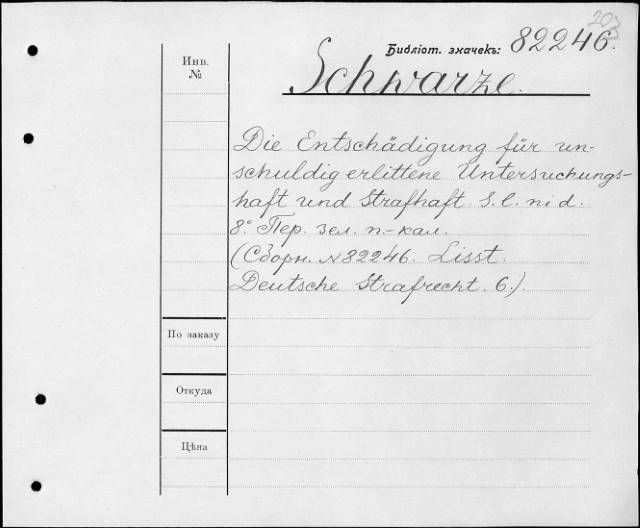 203
Библіот. значекъ: 82246.
Инв.
№
Schwarze.
Die Entschädigung für un-
schuldig erlittene Untersuchungs-
haft und Strafhaft. S. l. ni d.
8° Пер. зел. п.-кал.
(Сборн. №82246. Lisst.
Deutsche Strafrecht. 6.).
По заказу
Откуда
Цѣна